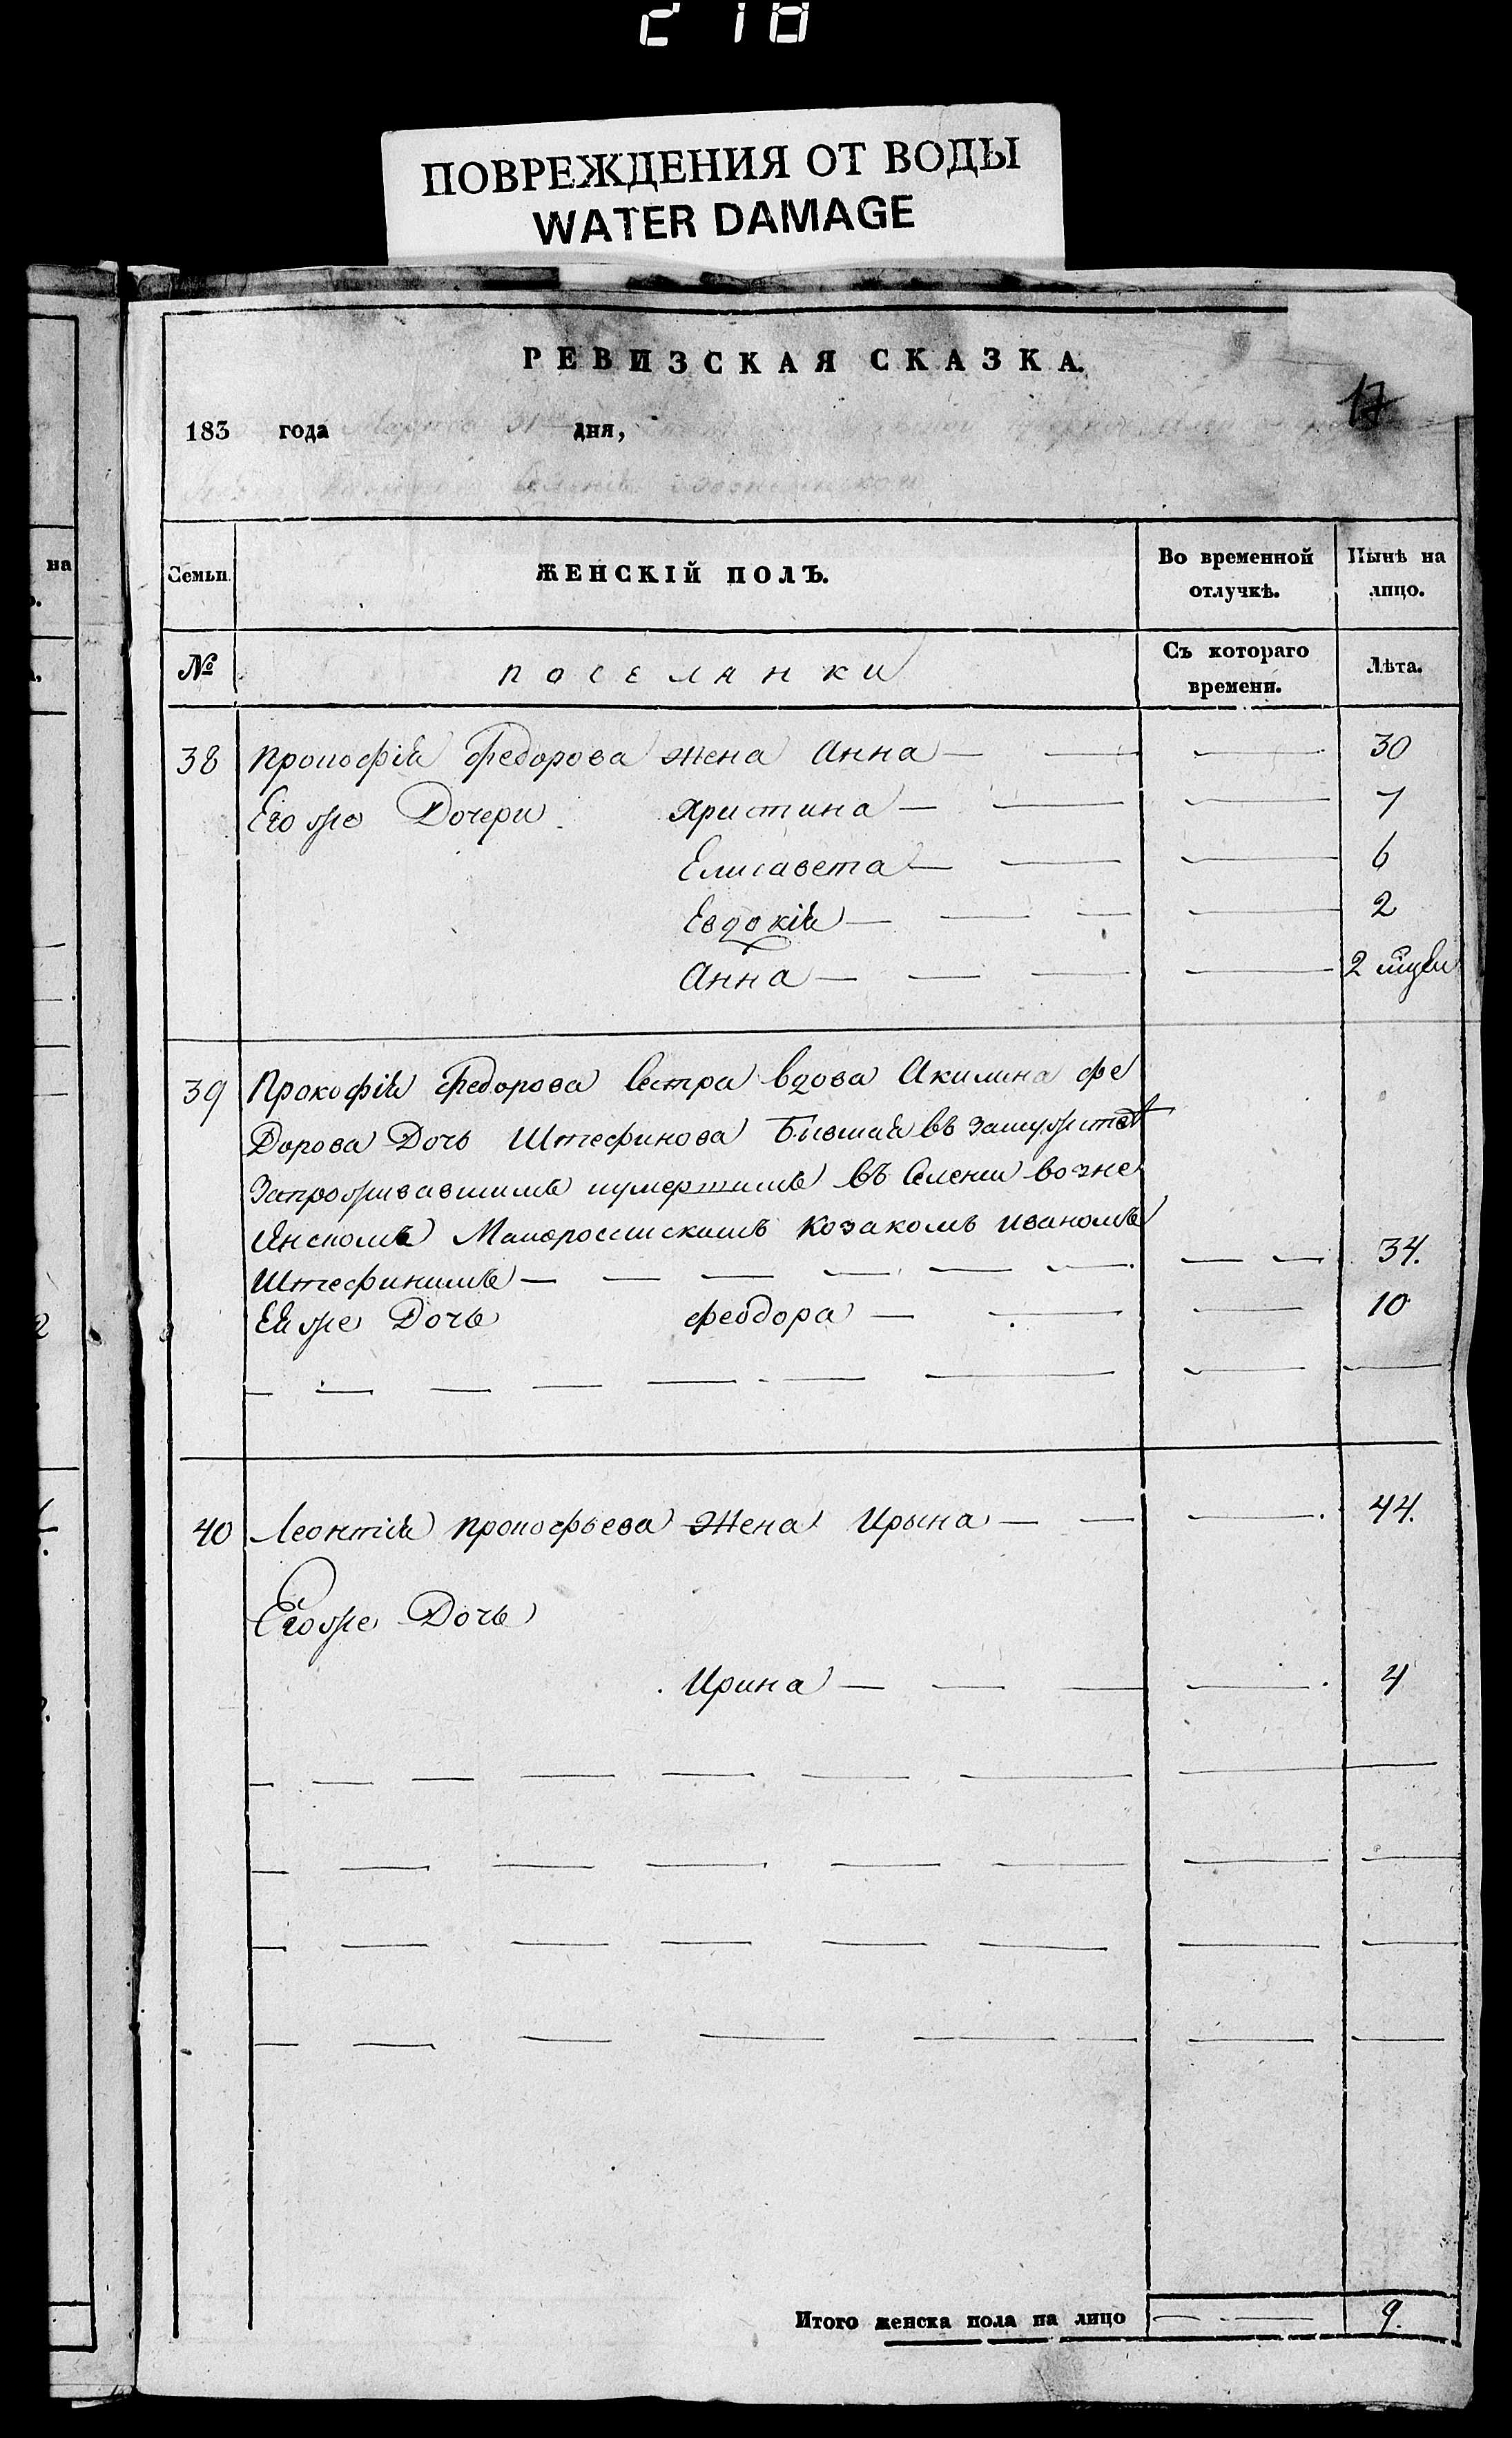 218
ПОВРЕЖДЕНИЯ ОТ ВОДЫ
WATER DAMAGE
РЕВИЗСКАЯ СКАЗКА.
17
183 года Марта 31 дня,
на
Семьи
ЖЕНСКІЙ ПОЛЪ.
Во временной отлучкѣ.
Нынѣ на лицо.
№
поселянки
Съ котораго времени.
Лѣта.
38 Прокофія Федорова жена Анна — — — 30
Его же Дочери Христина — — — 7
Елисавета — — — 6
Евдокія — — — — 2
Анна — — — — 2
39 Прокофія Федорова Сестра вдова Акилина Фе
дорова Дочь Штефинова Бывшая въ замужствѣ
запроживавшимъ иумершимъ въ Селении возне
сенскомъ Малороссискимъ Козакомъ Иваномъ
Штефинимъ — — — — — — — — 34.
Ея же Дочь Феодора — — — 10
40 Леонтія Прокофьева Жена Ирына — — — 44.
Егоже Дочь
Ирина — — — — 4
Итого женска пола на лицо — — 9.